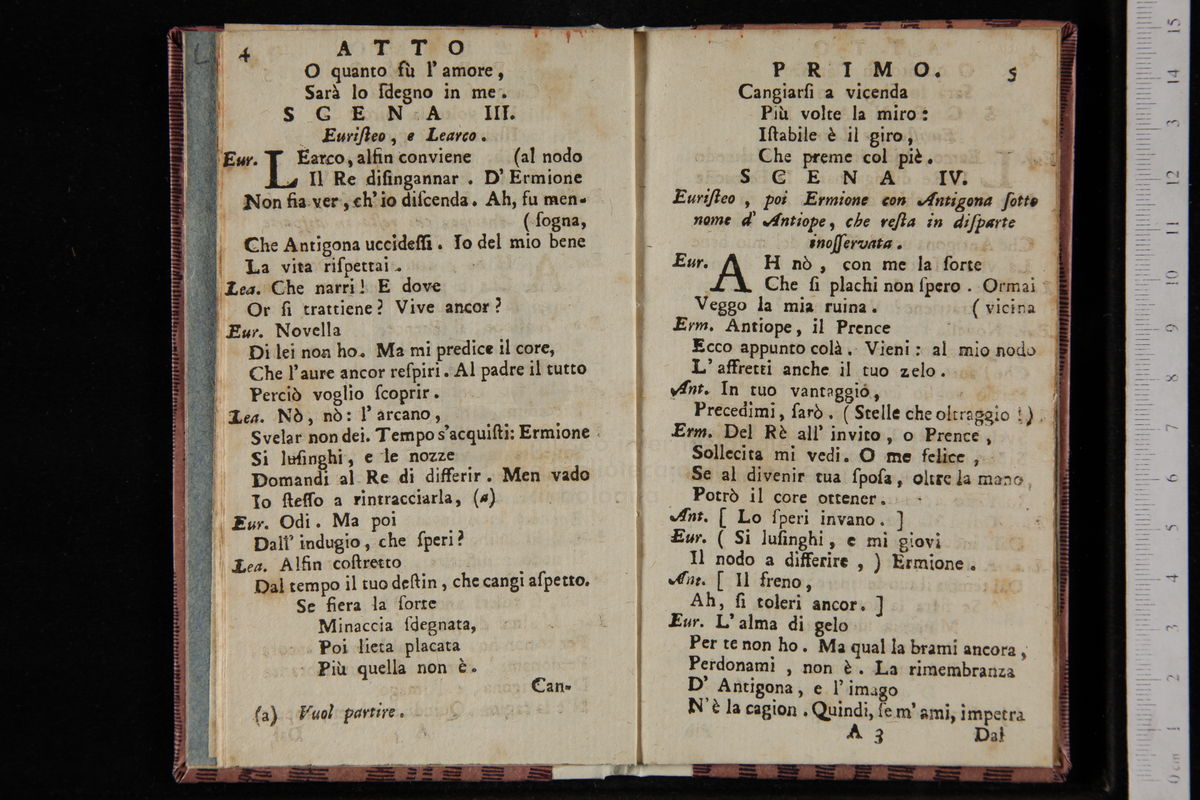 4 ATTO
O quanto fù l'amore,
Sarà lo ſdegno in me.
SCENA III.
Euriſteo, e Learco.
Eur. LEarco, alfin conviene (al nodo
Il Re diſingannar. D'Ermione
Non fia ver, ch'io diſcenda. Ah, fu men-
(ſogna,
Che Antigona uccideſſi. Io del mio bene
La vita riſpettai.
Lea. Che narri! E dove
Or ſi trattiene? Vive ancor?
Eur. Novella
Di lei non ho. Ma mi predice il core,
Che l'aure ancor reſpiri. Al padre il tutto
Perciò voglio ſcoprir.
Lea. Nò, nò: l'arcano,
Svelar non dei. Tempo s'acquiſti: Ermione
Si luſinghi, e le nozze
Domandi al Re di differir. Men vado
Io ſteſſo a rintracciarla, (a)
Eur. Odi. Ma poi
Dall'indugio, che ſperi?
Lea. Alfin coſtretto
Dal tempo il tuo deſtin, che cangi aſpetto.
Se fiera la ſorte
Minaccia ſdegnata,
Poi lieta placata
Più quella non è.
Can-
(a) Vuol partire.
PRIMO. 5
Cangiarſi a vicenda
Più volte la miro:
Iſtabile è il giro,
Che preme col piè.
SCENA IV.
Euriſteo, poi Ermione con Antigona ſotto
nome d'Antiope, che reſta in diſparte
inoſſervata.
Eur. AH nò, con me la ſorte
Che ſi plachi non ſpero. Ormai
Veggo la mia ruina. (vicina
Erm. Antiope, il Prence
Ecco appunto colà. Vieni: al mio nodo
L'affretti anche il tuo zelo.
Ant. In tuo vantaggio,
Precedimi, ſarò. (Stelle che oltraggio!)
Erm. Del Rè all'invito, o Prence,
Sollecita mi vedi. O me felice,
Se al divenir tua ſpoſa, oltre la mano,
Potrò il core ottener.
Ant. [Lo ſperi invano.]
Eur. (Si luſinghi, e mi giovi
Il nodo a differire,) Ermione.
Ant. [Il freno,
Ah, ſi toleri ancor.]
Eur. L'alma di gelo
Per te non ho. Ma qual la brami ancora,
Perdonami, non è. La rimembranza
D'Antigona, e l'imago
N'è la cagion. Quindi, ſe m'ami, impetra
A 3 Dal